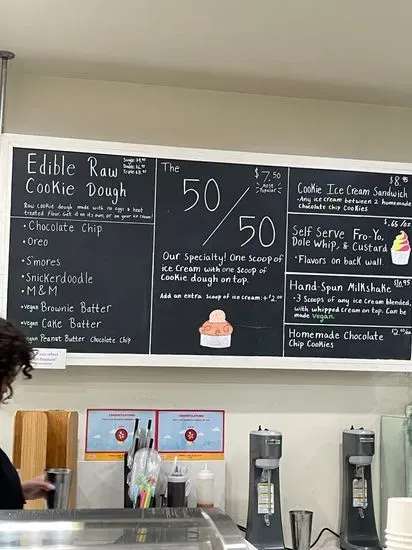 Edible Raw
Cookie Dough
Raw cookie dough made with no eggs & heat
treated flour. Get it on its own, or on your ice cream!
• Chocolate Chip
• Oreo
• S'mores
• Snickerdoodle
• M&M
• vegan Brownie Batter
• vegan Cake Batter
• vegan Peanut Butter Chocolate Chip
The
$7.50
Most
Popular
50/50
Our Specialty! One Scoop of
ice Cream with one Scoop of
Cookie dough on top.
Add an extra scoop of ice cream: +$2.00
$8.95
Cookie Ice Cream Sandwich
• Any ice cream between 2 homemade
chocolate chip cookies
$.65/oz
Self Serve Fro-Yo,
Dole Whip, & Custard
• Flavors on back wall.
Hand-Spun Milkshake
• 3 Scoops of any ice cream blended,
with whipped cream on top. Can be
made vegan.
Homemade Chocolate
Chip Cookies
CONGRATULATIONS
CONGRATULATIONS